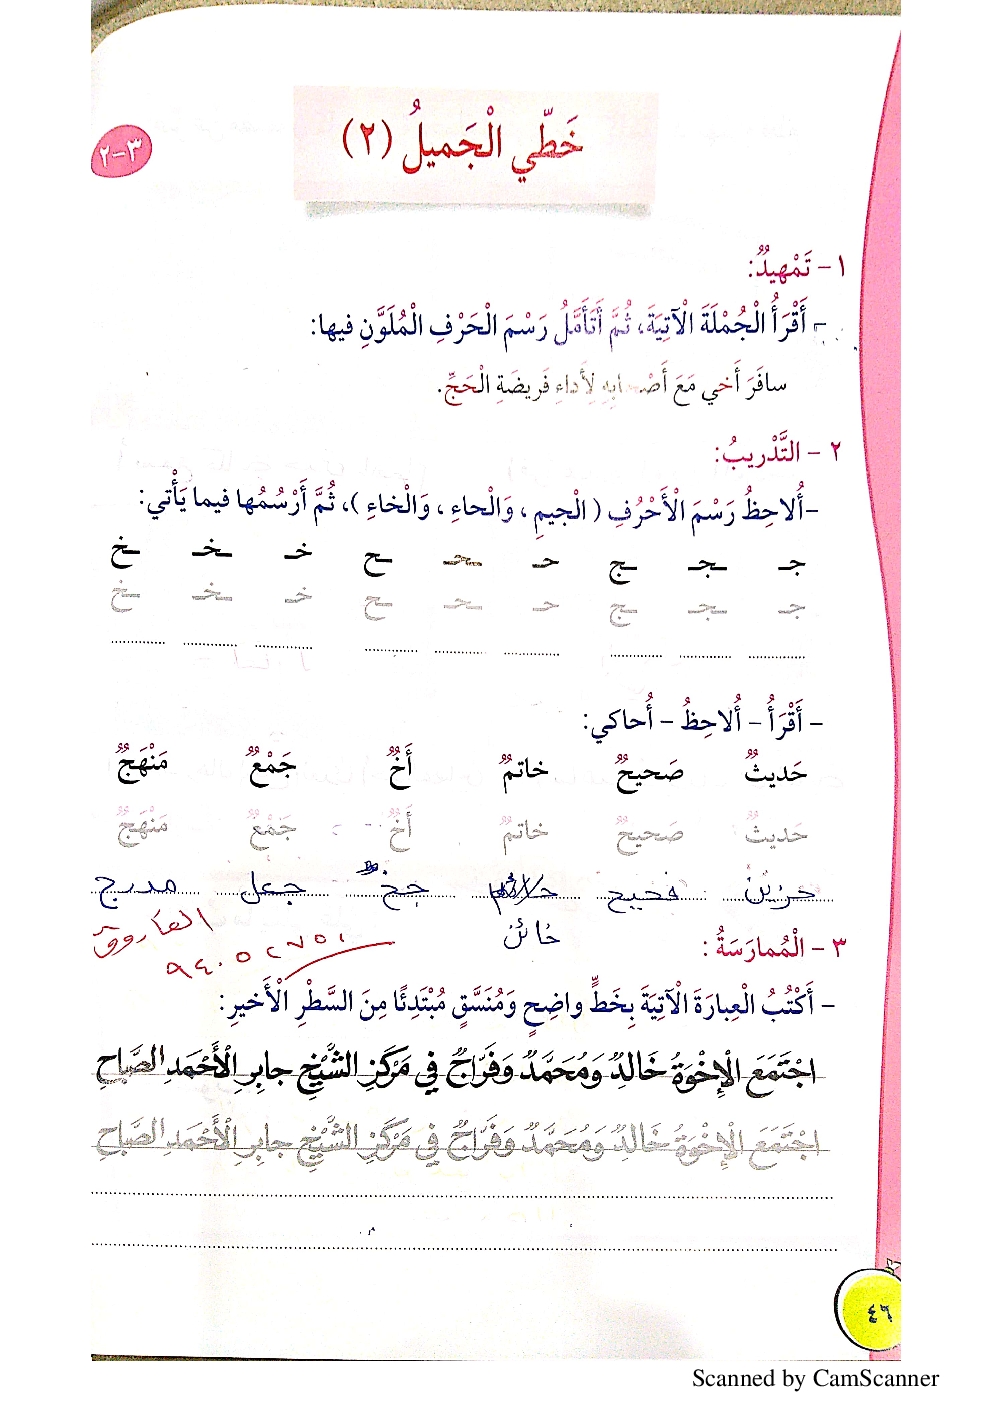 خَطّي الْجَميلُ (٢)
٣-٢
١ - تَمْهيدٌ:
- أَقْرَأُ الْجُمْلَةَ الْآتِيَةَ، ثُمَّ أَتَأَمَّلُ رَسْمَ الْحَرْفِ الْمُلَوَّنِ فيها:
سافَرَ أَخي مَعَ أَصْحابِهِ لِأَداءِ فَريضَةِ الْحَجِّ.
٢ - التَّدْريبُ:
-أُلاحِظُ رَسْمَ الْأَحْرُفِ ( الْجيمِ ، وَالْحاءِ ، وَالْخاءِ )، ثُمَّ أَرْسُمُها فيما يَأْتي:
جـ ـجـ ـج حـ ـحـ ـح خـ ـخـ ـخ
جـ ـجـ ـج حـ ـحـ ـح خـ ـخـ ـخ
- أَقْرَأُ - أُلاحِظُ - أُحاكي:
حَديثٌ صَحيحٌ خاتمٌ أَخٌ جَمْعٌ مَنْهَجٌ
حَديثٌ صَحيحٌ خاتمٌ أَخٌ جَمْعٌ مَنْهَجٌ
جعل مدرج
الفاروق
٩٤٠٥٢٧٥١
٣ - الْمُمارَسَةُ:
- أَكْتُبُ الْعِبارَةَ الْآتِيَةَ بِخَطٍّ واضِحٍ وَمُنَسَّقٍ مُبْتَدِئًا مِنَ السَّطْرِ الْأَخيرِ:
اجْتَمَعَ الْإِخْوَةُ خَالِدٌ وَمُحَمَّدٌ وَفَرَّاجٌ في مَرْكَزِ الشَّيْخِ جابِرِ الْأَحْمَدِ الصَّباحِ
اجْتَمَعَ الْإِخْوَةُ خَالِدٌ وَمُحَمَّدٌ وَفَرَّاجٌ في مَرْكَزِ الشَّيْخِ جابِرِ الْأَحْمَدِ الصَّباحِ
٤٦
Scanned by CamScanner